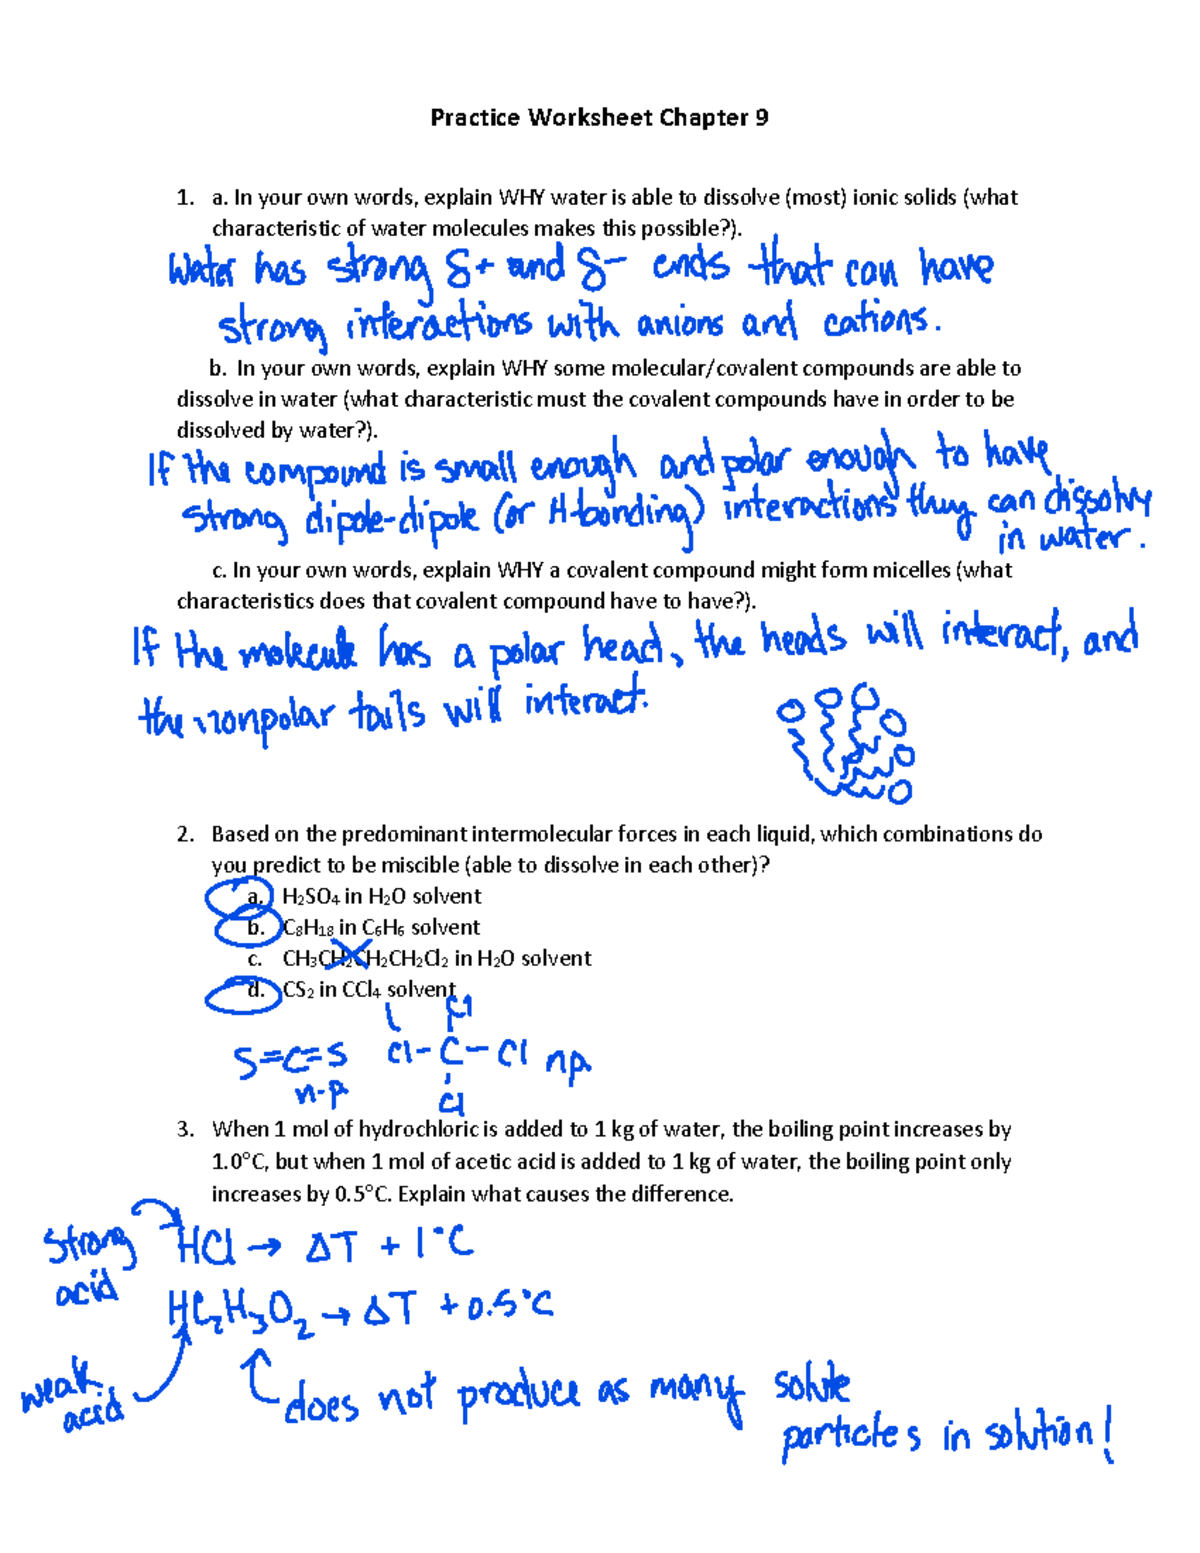 Practice Worksheet Chapter 9
1. a. In your own words, explain WHY water is able to dissolve (most) ionic solids (what
characteristic of water molecules makes this possible?).
Water has strong δ+ and δ- ends that can have
strong interactions with anions and cations.
b. In your own words, explain WHY some molecular/covalent compounds are able to
dissolve in water (what characteristic must the covalent compounds have in order to be
dissolved by water?).
If the compound is small enough and polar enough to have
strong dipole-dipole (or H-bonding) interactions they can dissolve
in water.
c. In your own words, explain WHY a covalent compound might form micelles (what
characteristics does that covalent compound have to have?).
If the molecule has a polar head, the heads will interact, and
the nonpolar tails will interact.
2. Based on the predominant intermolecular forces in each liquid, which combinations do
you predict to be miscible (able to dissolve in each other)?
a. H₂SO₄ in H₂O solvent
b. C₈H₁₈ in C₆H₆ solvent
c. CH₃CH₂CH₂CH₂Cl₂ in H₂O solvent
d. CS₂ in CCl₄ solvent
Cl
S=C=S Cl-C-Cl np
n-p Cl
3. When 1 mol of hydrochloric is added to 1 kg of water, the boiling point increases by
1.0°C, but when 1 mol of acetic acid is added to 1 kg of water, the boiling point only
increases by 0.5°C. Explain what causes the difference.
strong acid HCl → ΔT + 1°C
HC₂H₃O₂ → ΔT + 0.5°C
weak acid does not produce as many solute
particles in solution!